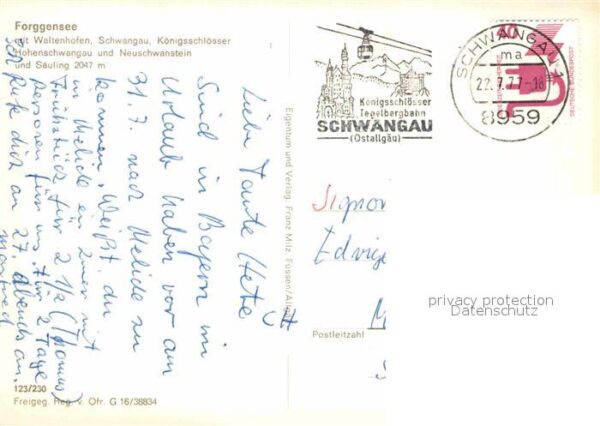 Forggensee
mit Waltenhofen, Schwangau, Königsschlösser
Hohenschwangau und Neuschwanstein
und Säuling 2047 m
Liebe Tante Hete
Sind in Bayern im
Urlaub haben vor am
31.7. nach Melide zu
kommen. Weißt du
in Melide ein Zimmer mit
Frühstück für 2 1/2 (Thomas)
Personen für uns für 2 Tage
Ich rufe dich an 27. Abends an.
Manfred
123/230
Freigeg. Reg. v. Ofr. G 16/38834
Eigentum und Verlag Franz Milz, Füssen/Allgäu
Königsschlösser
Tegelbergbahn
SCHWANGAU
(Ostallgäu)
SCHWANGAU 1
ma
22.7.77-18
8959
40
DEUTSCHE BUNDESPOST
Signor
Edvige
Postleitzahl
privacy protection
Datenschutz